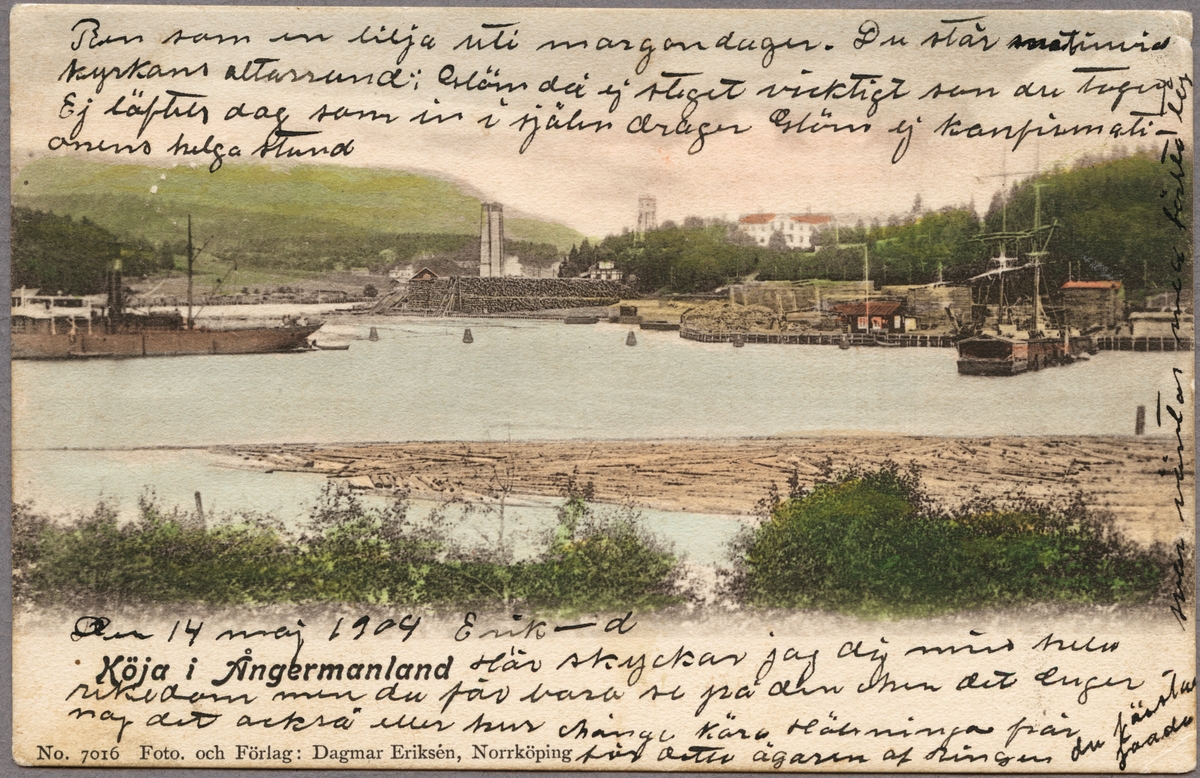 Ren som en lilja uti margondager. Du står
kyrkans altarrund; Glöm då ej steget vicktigt som du tager
Ej löftets dag som in i själen drager Glöm ej konfirmati-
onens helga stund
Den 14 maj 1904 Erik—d
Köja i Ångermanland Här skyckar jag dig min hela
rikedom men du får bara se på den men det duger
nog det också eller hur Många Kära Hälsningar från
No. 7016 Foto. och Förlag: Dagmar Eriksén, Norrköping för detta ägaren af Ringen
du
svar väntas med